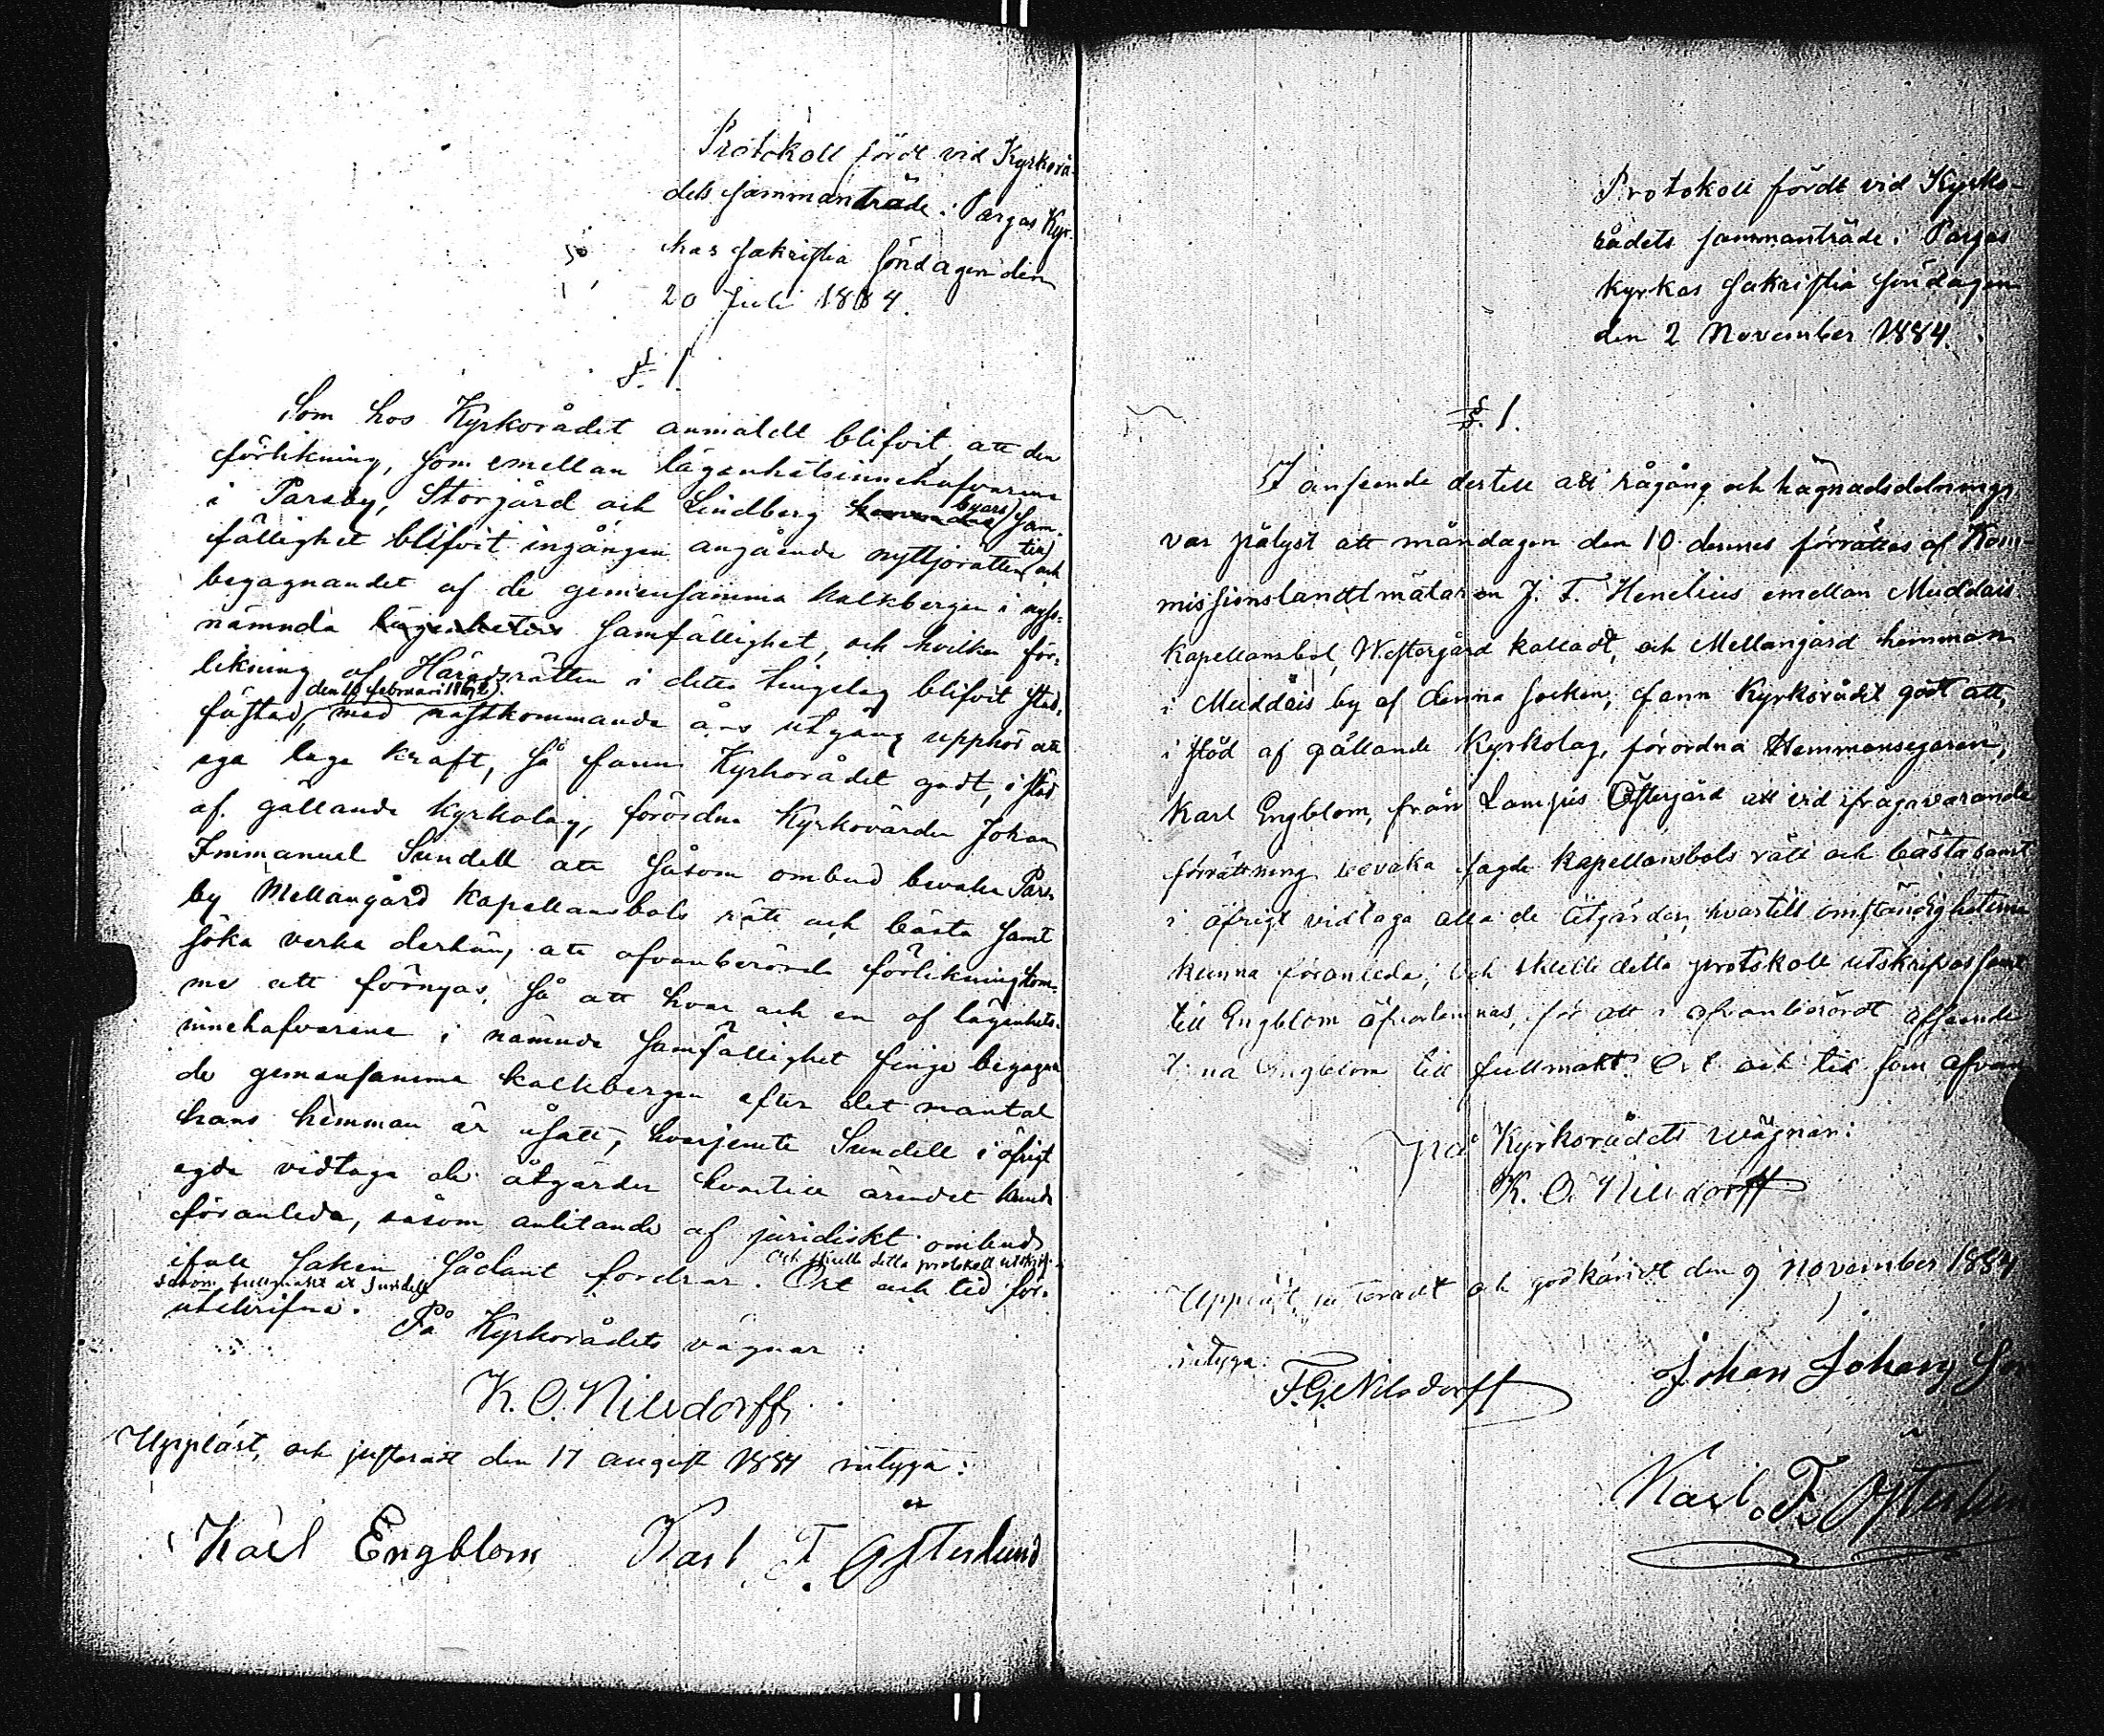 Protokoll fördt vid Kyrkorå-
dets sammanträde i Pargas Kyr-
kas sakristia söndagen den
20 Juli 1884.
§. 1.
Som hos Kyrkorådet anmäldt blifvit, att den
förlikning, som emellan lägenhetsinnehafvarene
i Parsby, Storgård och Lindberg byars sam-
fällighet blifvit ingången angående nyttjorätten till och
begagnandet af de gemensamma kalkbergen i nyss-
nämnda lägenheters samfällighet, och hvilken för-
likning af Häradsrätten i detta tingslag blifvit stad-
den 10 februari
fästad, med nästkommande års utgång upphör att
ega laga kraft, så fann Kyrkorådet godt, i stöd
af gällande Kyrkolag, förordna Kyrkovärden Johan
Immanuel Sundell att såsom ombud bevaka Pars-
by Mellangård Kapellansbols rätt och bästa samt
söka verka derhän, att ofvanberörde förlikning kom-
me att förnyas, så att hvar och en af lägenhets-
innehafvarene i nämnde samfällighet finge begagna
de gemensamma kalkbergen efter det mantal
hans hemman är åsatt, hvarjemte Sundell i öfrigt
egde vidtaga de åtgärder hvartill ärendet kunde
föranleda, såsom anlitande af juridiskt ombud
och skulle detta protokoll utskrif-
ifall saken sådant fordrar. Ort och tid för-
såsom fullmakt åt Sundell
utskrifna.
På Kyrkorådets vägnar:
K. O. Nilsdorff
Uppläst, och justeradt den 17 august 1884 intyga:
Karl Engblom Karl F. Österlund
Protokoll fördt vid Kyrko-
rådets sammanträde i Pargas
kyrkas sakristia söndagen
den 2 November 1884.
§. 1.
I anseende dertill att rågång och hägnadsdelnings
var pålyst att måndagen den 10 dennes förrättas af Kom-
missionslandtmätaren J. F. Henelius emellan Muddais
Kapellansbol, Westergård kalladt, och Mellangård hemman
i Muddais by af denna socken, fann Kyrkorådet godt att,
i stöd af gällande Kyrkolag, förordna Hemmansegaren,
Karl Engblom, från Lampis Östergård att vid ifrågavarande
förrättning bevaka sagde Kapellansbols rätt och bästa samt
i öfrigt vidtaga alla de åtgärder, hvartill omständigheterna
kunna föranleda; och skulle detta protokoll utskrifvas samt
till Engblom öfverlemnas, för att i ofvanberördt afseende
tjena Engblom till fullmakt. Ort och tid som ofvan
på Kyrkorådets wägnar:
K. O. Nilsdorff
Uppläst, justeradt och godkändt den 9 November 1884
intyga:
F. G. Nilsdorff Johan Johans Son
Karl F. Österlun